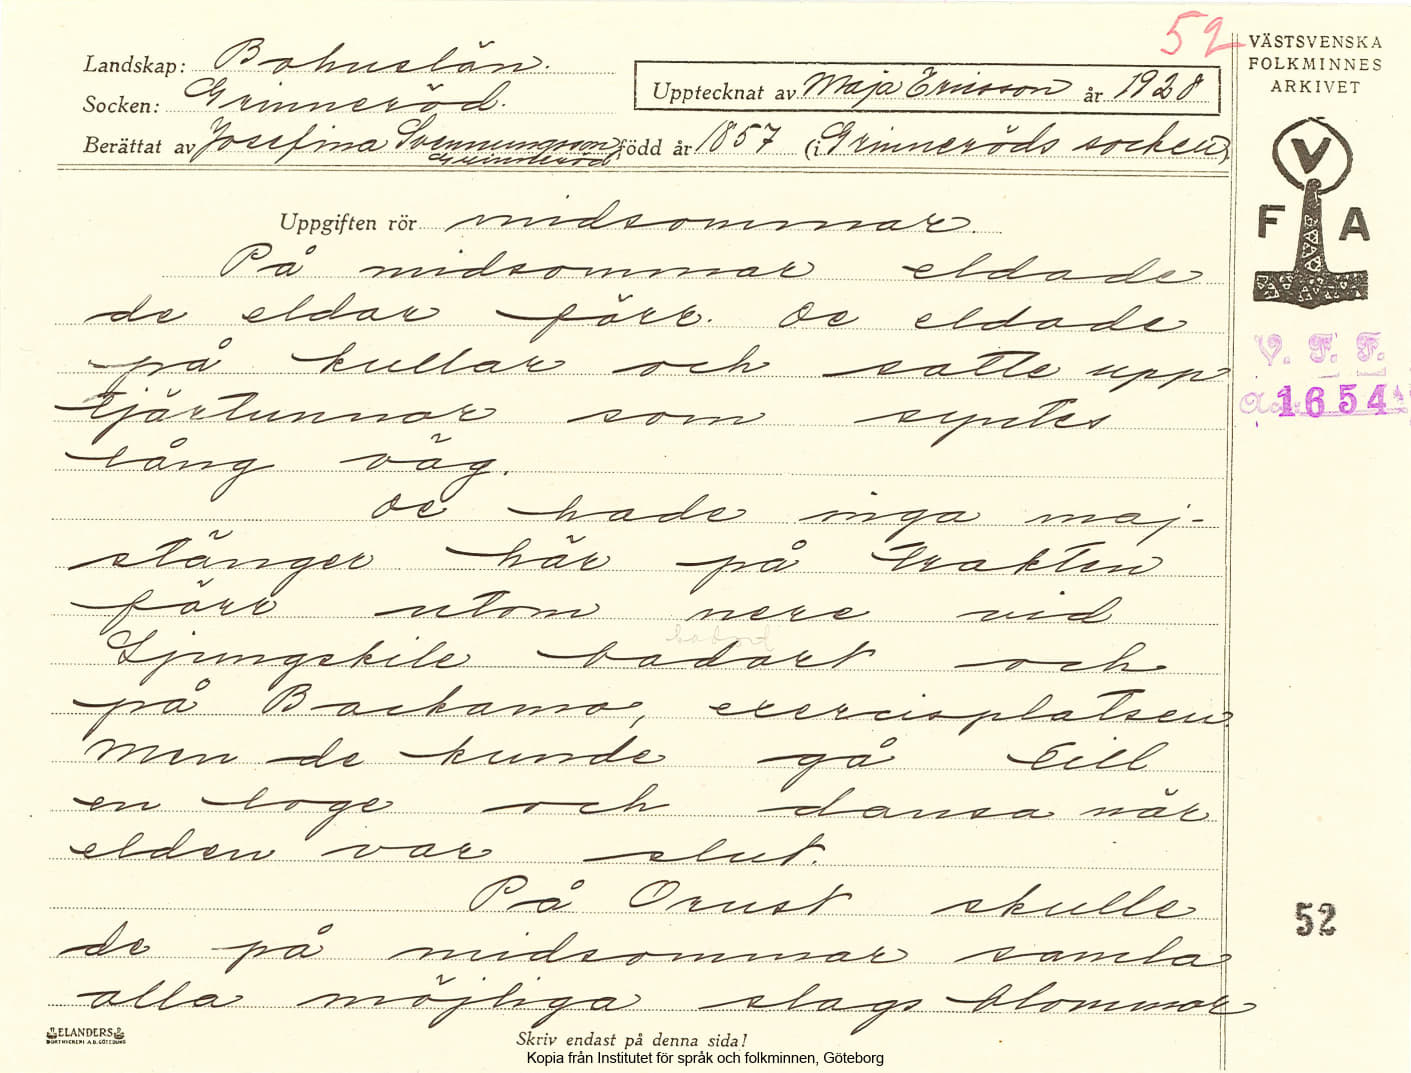 52
VÄSTSVENSKA
FOLKMINNES
ARKIVET
Landskap: Bohuslän.
Socken: Grinneröd.
Upptecknat av Maja Ericsson år 1928
Berättat av Josefina Svenningsson född år 1857 (i Grinneröds socken)
Grinneröd
V
F A
Uppgiften rör midsommar.
På midsommar eldade
de eldar förr. De eldade
på kullar och satte upp
tjärtunnor som syntes
lång väg.
V. F. F.
1654
De hade inga maj-
stänger här på trakten
förr utom nere vid
badort
Ljungskile badort och
på Backamo, exercisplatsen.
Men de kunde gå till
en loge och dansa når
elden var slut.
På Orust skulle
de på midsommar samla
alla möjliga slags blommor
52
ELANDERS
BOKTRYCKERI A.B. GÖTEBORG
Skriv endast på denna sida!
Kopia från Institutet för språk och folkminnen, Göteborg